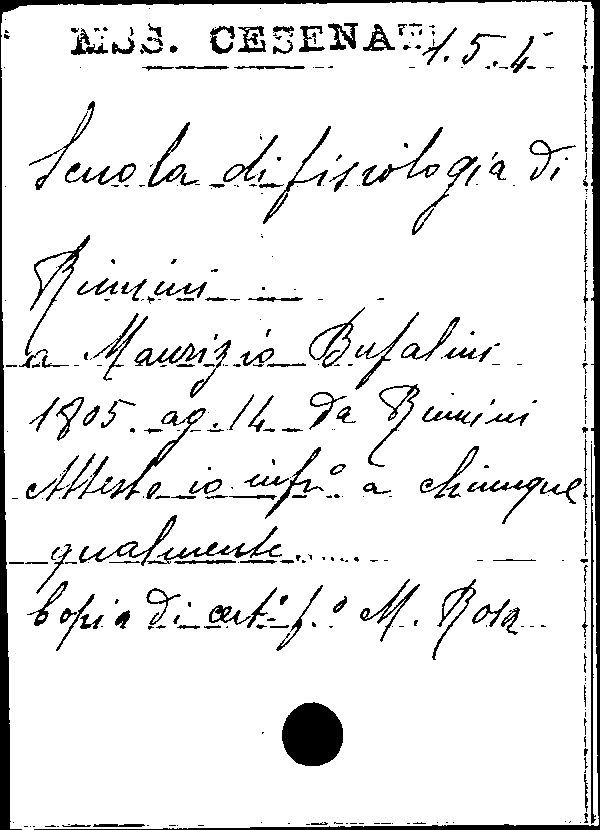 MSS. CESENATI 1.5.4
Scuola di fisiologia di
Rimini
a Maurizio Bufalini
1805. ag. 14 da Rimini
Attesto io infr.º a chiunque
qualmente......
Copia di cert.º f.º M. Rosa